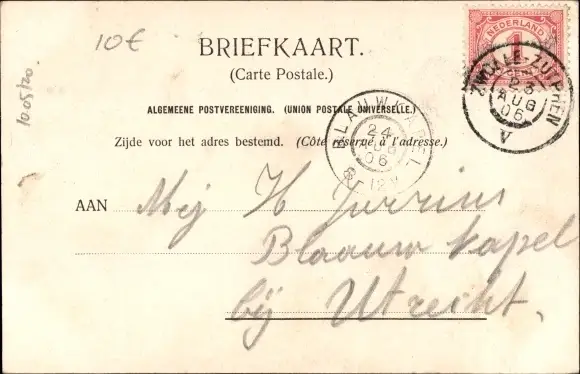 10€
BRIEFKAART.
(Carte Postale.)
ALGEMEENE POSTVEREENIGING. (UNION POSTALE UNIVERSELLE.)
Zijde voor het adres bestemd. (Côté réservé à l'adresse.)
NEDERLAND
1
ZWOLLE-ZUTPHEN
23
AUG
06
V
BLAUWKAPEL
24
AUG
06
8-12V
AAN Mej H Jurrius
Blaauw kapel
bij Utrecht.